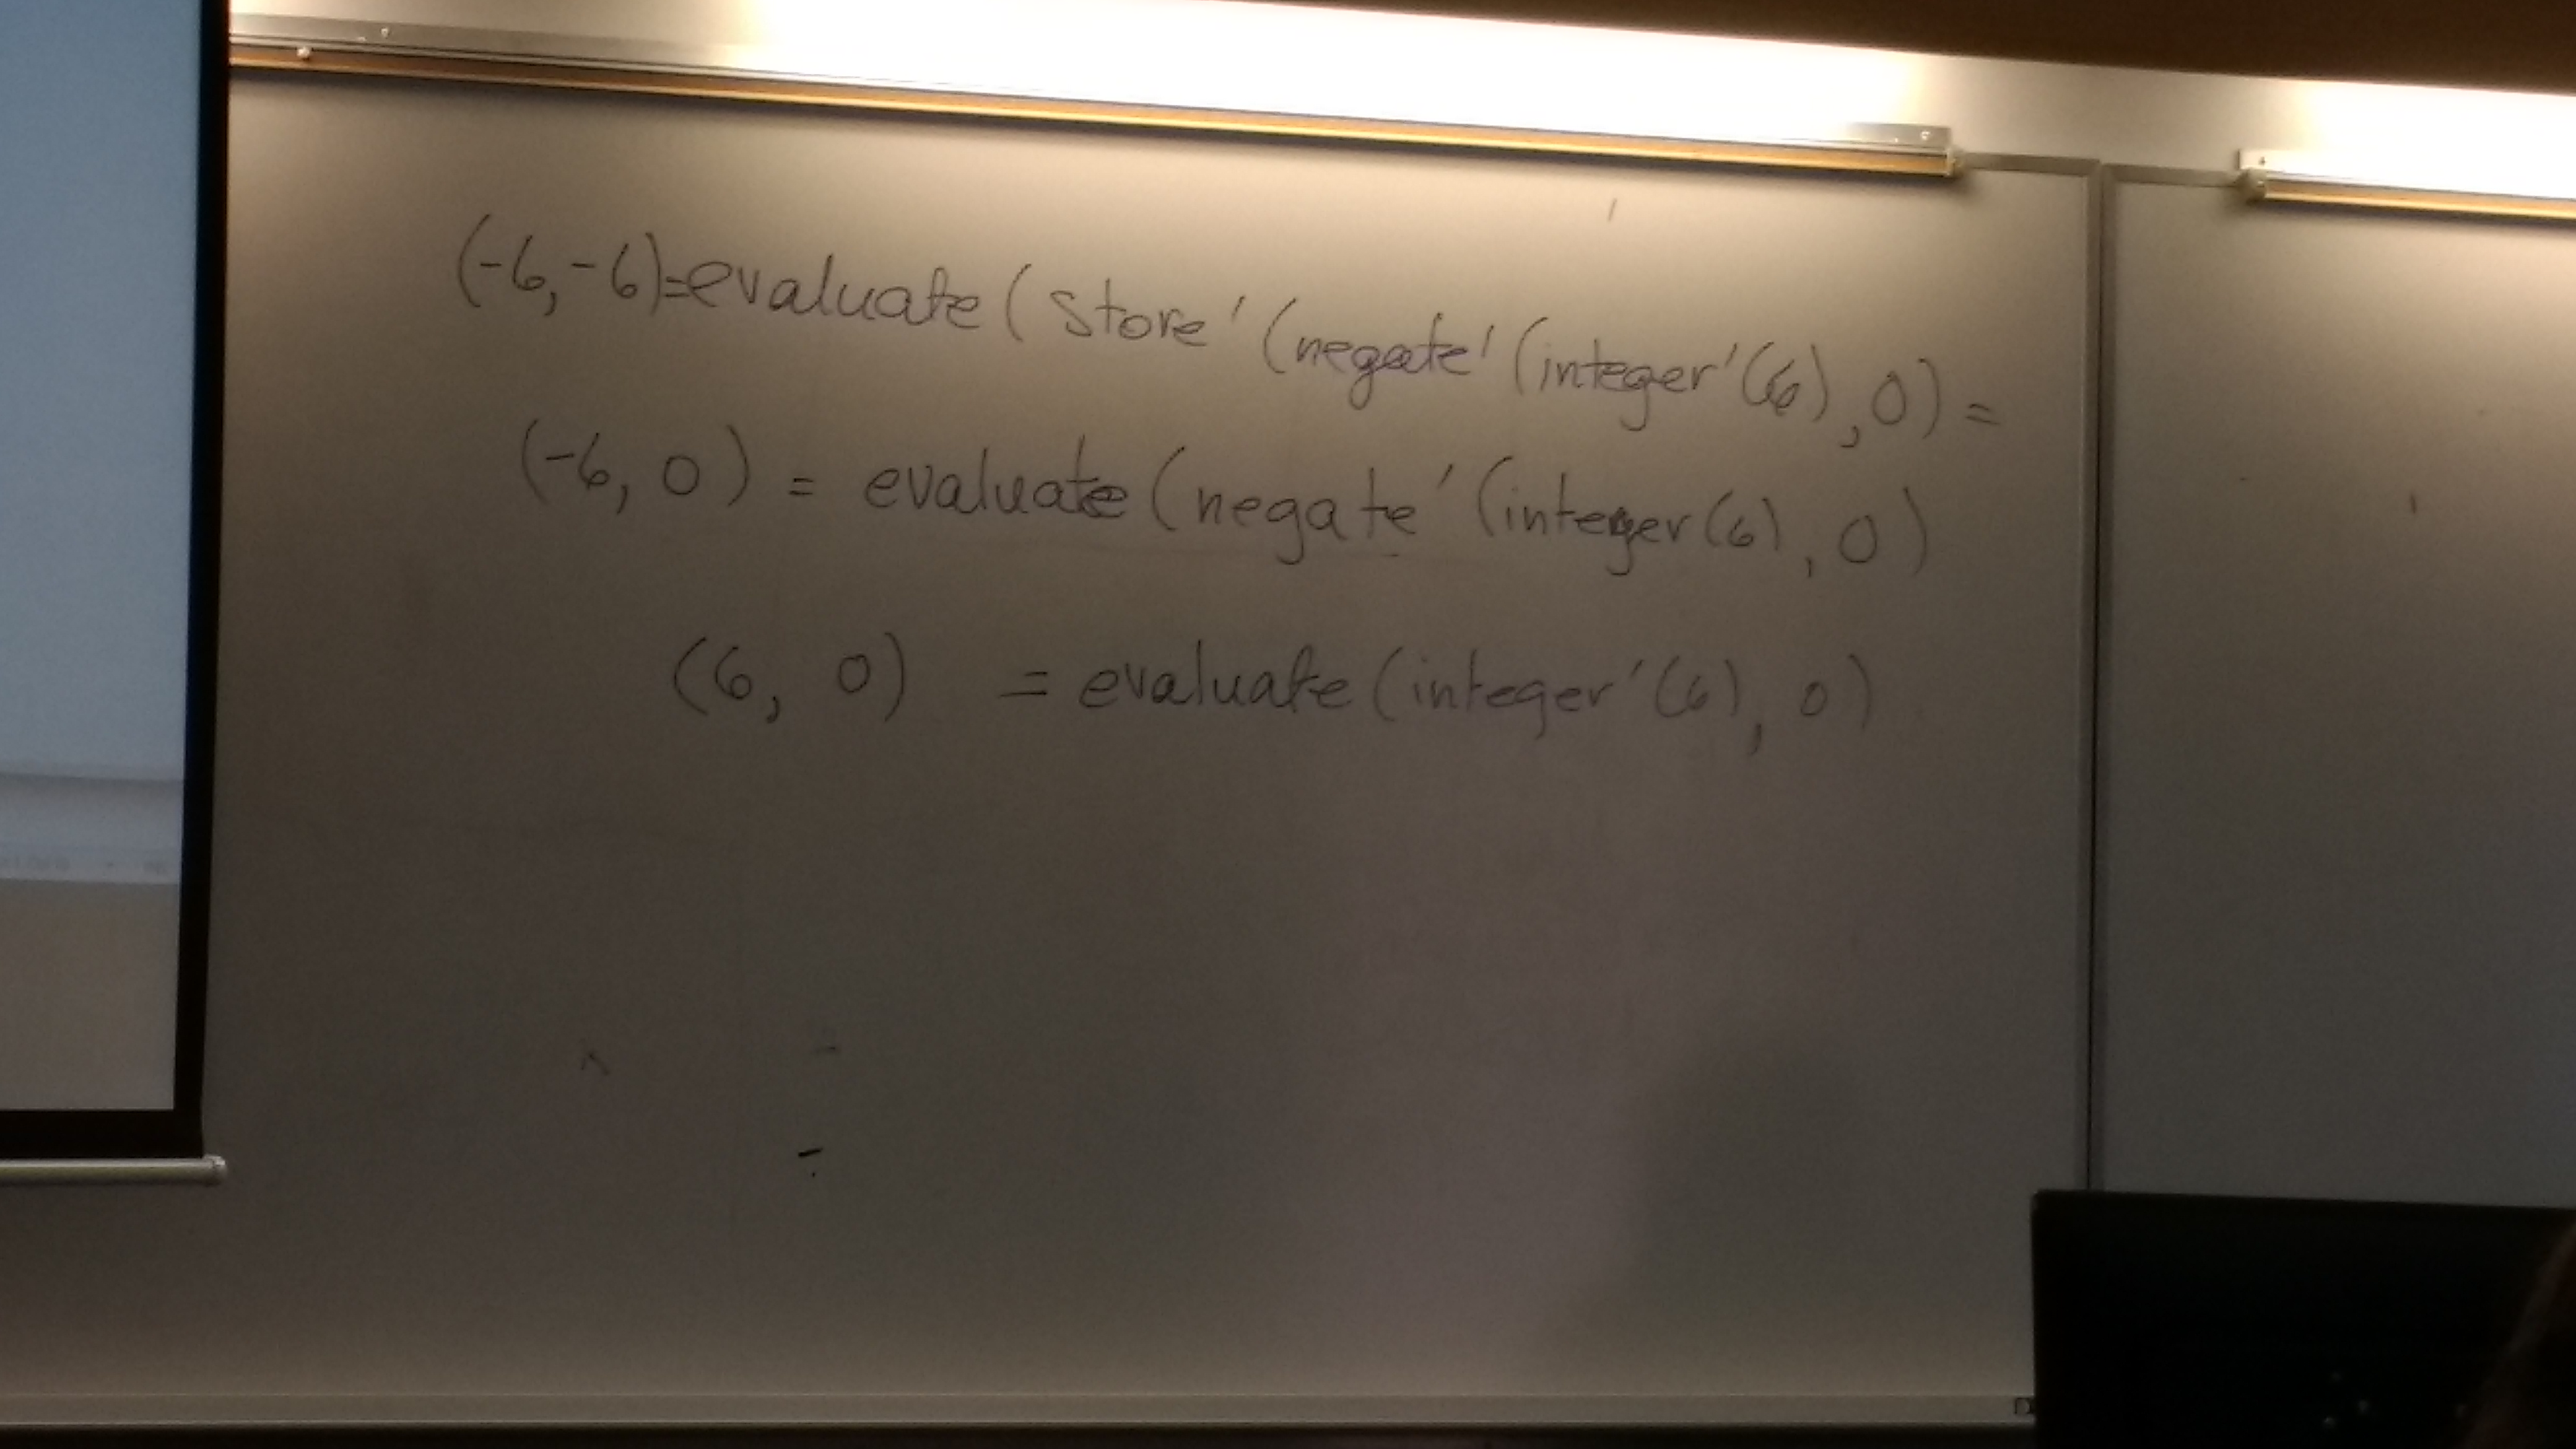 (-6,-6)=evaluate(store'(negate'(integer'(6),0)=
(-6,0) = evaluate(negate'(integer(6),0)
(6, 0) = evaluate(integer'(6),0)